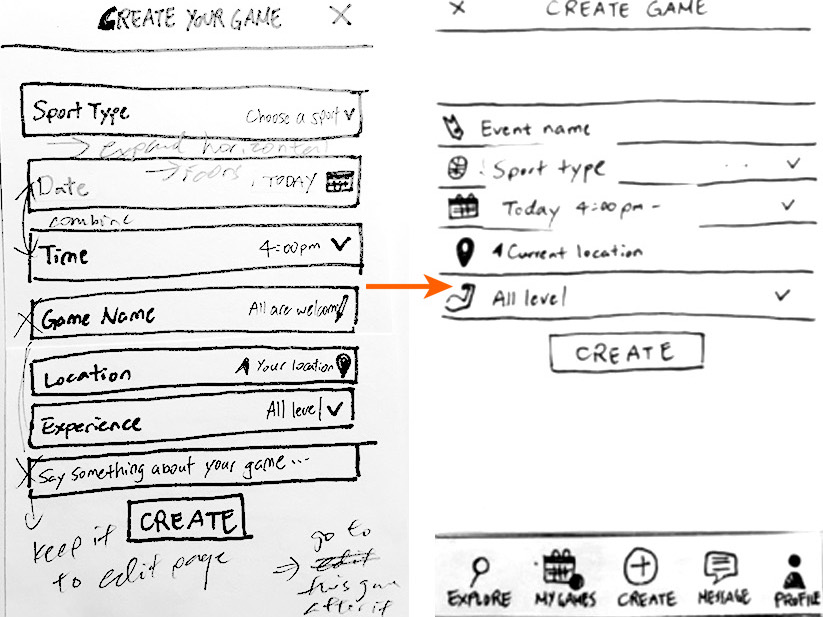 CREATE YOUR GAME X
Sport Type Choose a sport
→ expand horizontal
→
Date TODAY
combine
Time 4:00pm
Game Name All are welcome
Location Your location
Experience All level
Say something about your game...
CREATE
keep it
to edit page
go to
⇒ edit
this
after it
X CREATE GAME
Event name
Sport type
Today 4:00pm -
Current location
All level
CREATE
EXPLORE
MY GAMES
CREATE
MESSAGE
PROFILE